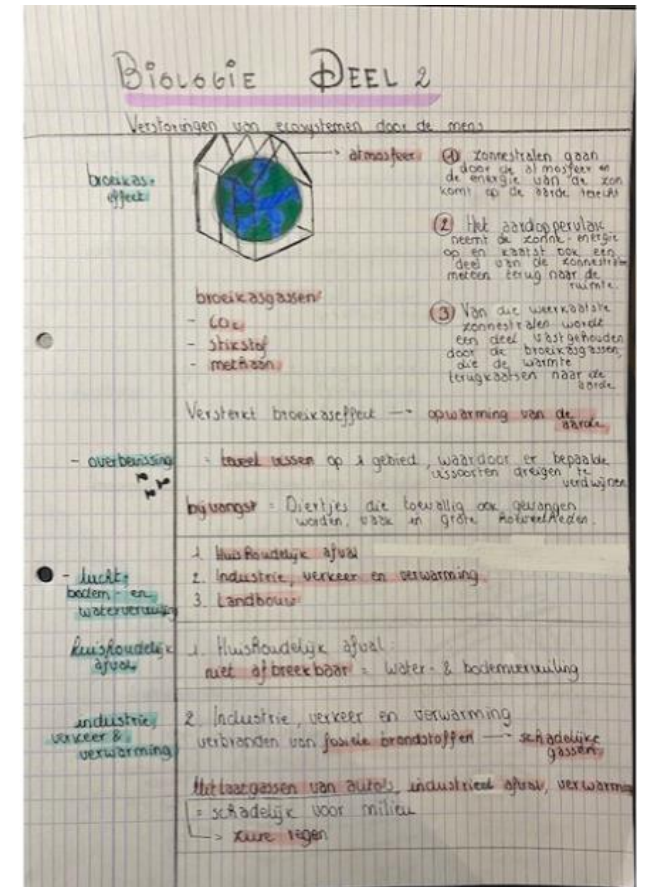 BiOLOGiE DEEL 2
Verstoringen van ecosystemen door de mens
broeikas-
effect
atmosfeer
① zonnestralen gaan
door de atmosfeer en
de energie van de zon
komt op de aarde terecht
② Het aardoppervlak
neemt de zonne-energie
op en kaatst ook een
deel van de zonnestralen
meteen terug naar de
ruimte.
③ Van die weerkaatste
zonnestralen wordt
een deel vastgehouden
door de broeikasgassen,
die de warmte
terugkaatsen naar de
aarde
broeikasgassen
- CO₂
- stikstof
- methaan
Versterkt broeikaseffect → opwarming van de
aarde
- overbevissing
= teveel vissen op 1 gebied, waardoor er bepaalde
vissoorten dreigen te
verdwijnen
bijvangst = Diertjes die toevallig ook gevangen
worden, vaak in grote hoeveelheden.
- lucht-,
bodem- en
watervervuiling
1. Huishoudelijk afval
2. Industrie, verkeer en verwarming
3. Landbouw
huishoudelijk
afval
1. Huishoudelijk afval:
niet afbreekbaar = water- & bodemvervuiling
industrie,
verkeer &
verwarming
2. Industrie, verkeer en verwarming
verbranden van fosiele brandstoffen → schadelijke
gassen
Uitlaatgassen van auto's, industrieel afval, verwarming
= schadelijk voor milieu
→ zure regen